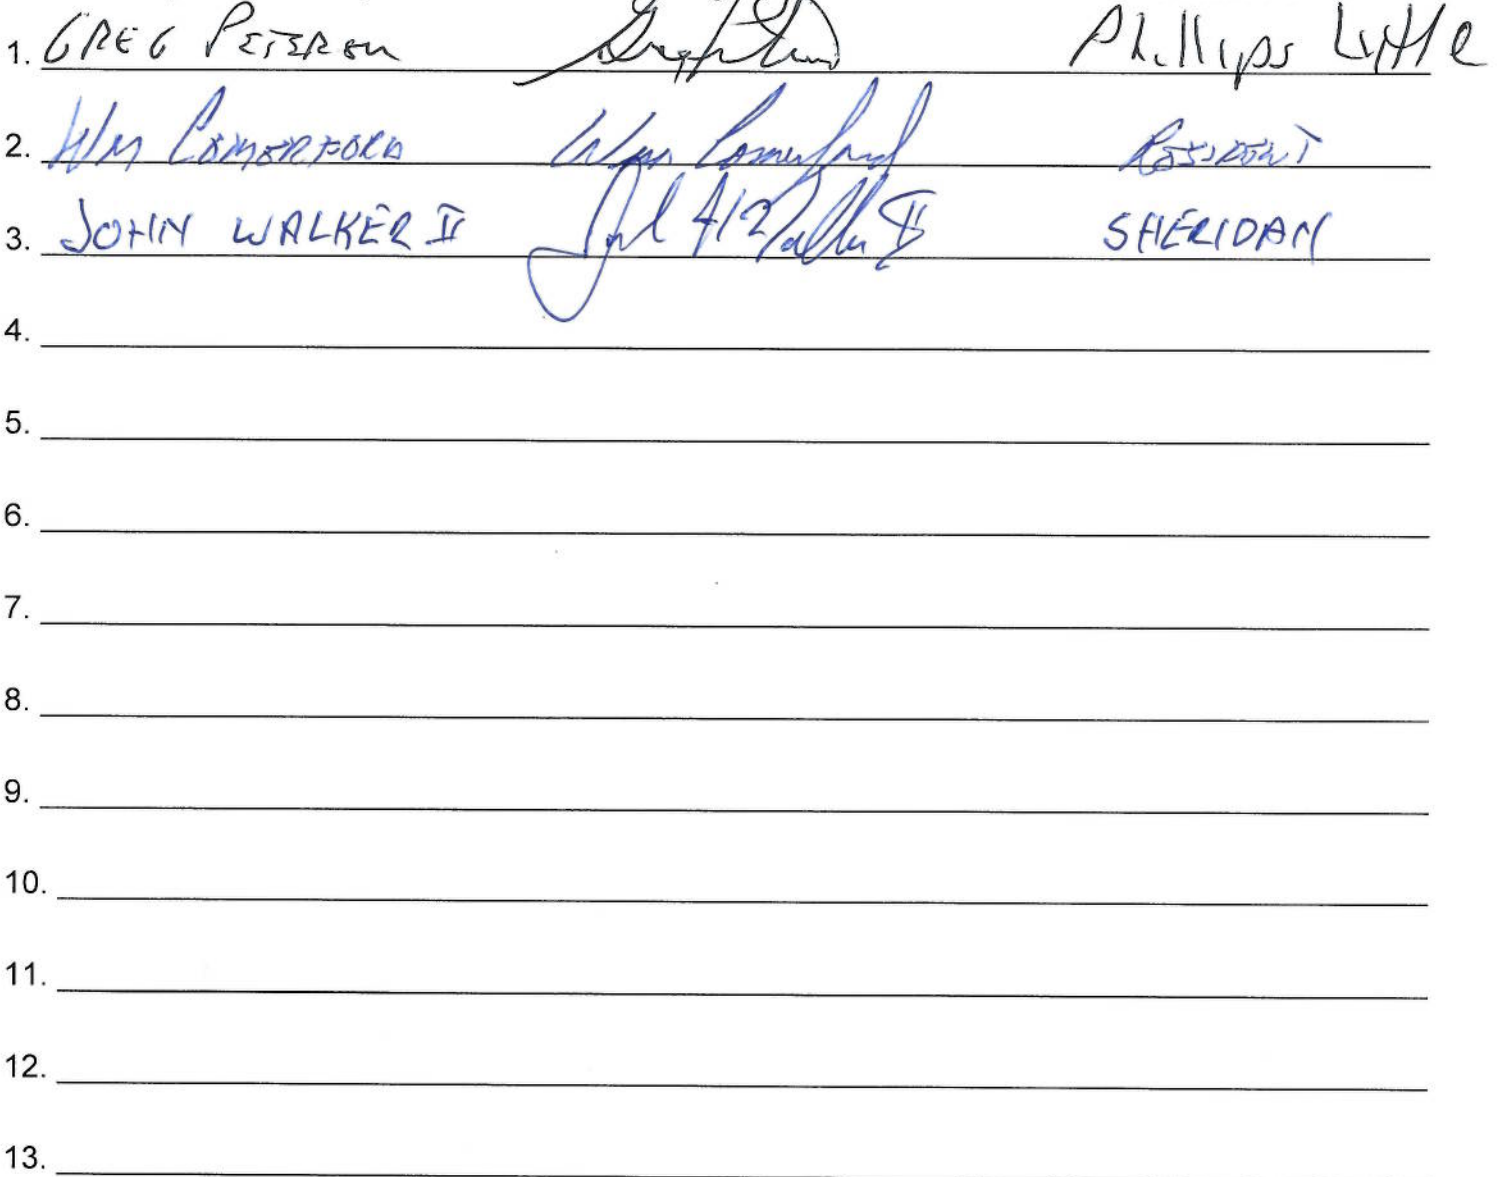 1. GREG PETERSEN Phillips Lytle
2. Wm COMERFORD Wm Comerford RESIDENT
3. JOHN WALKER II SHERIDAN
4.
5.
6.
7.
8.
9.
10.
11.
12.
13.